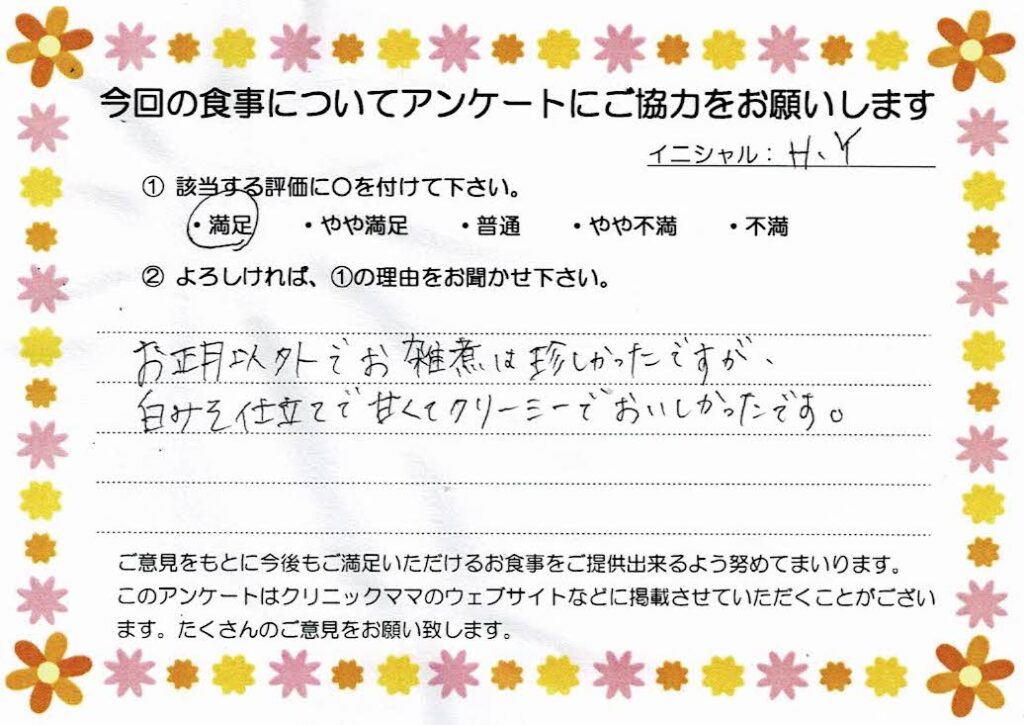 今回の食事についてアンケートにご協力をお願いします
イニシャル： H、Y
① 該当する評価に〇を付けて下さい。
・満足 ・やや満足 ・普通 ・やや不満 ・不満
② よろしければ、①の理由をお聞かせ下さい。
お正月以外でお雑煮は珍しかったですが、
白みそ仕立てで甘くてクリーミーでおいしかったです。
ご意見をもとに今後もご満足いただけるお食事をご提供出来るよう努めてまいります。
このアンケートはクリニックママのウェブサイトなどに掲載させていただくことがござい
ます。たくさんのご意見をお願い致します。